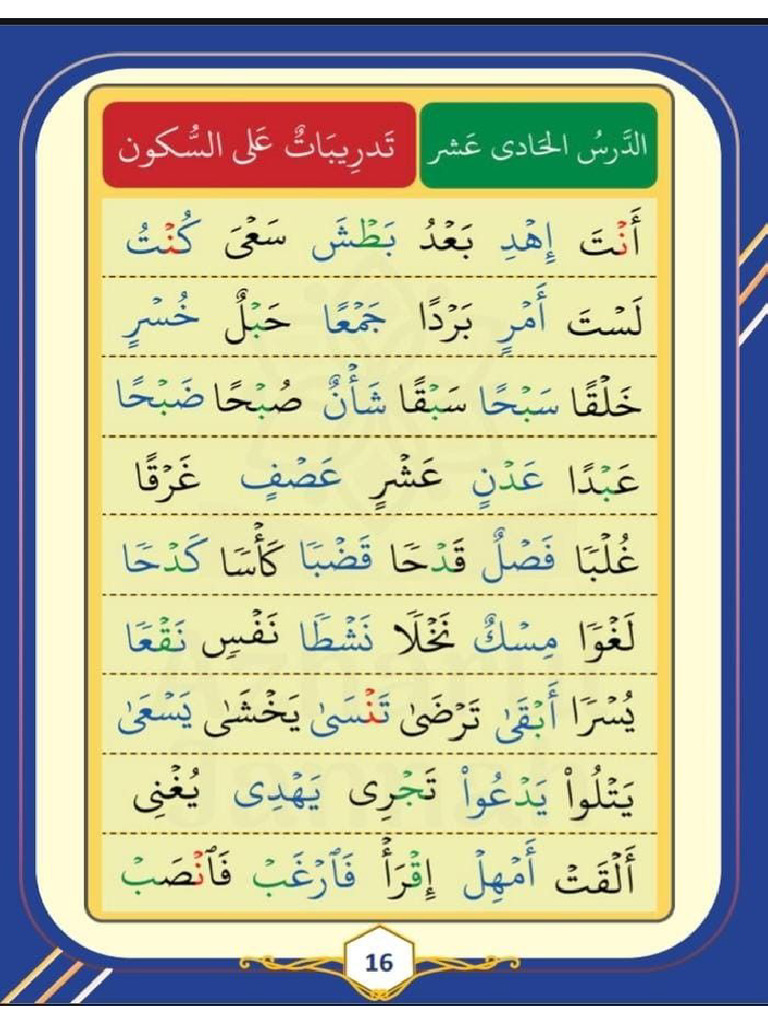 الدَّرسُ الحَادى عَشر تَدرِيبَاتٌ عَلى السُّكون
أَنْتَ إِهْدِ بَعْدُ بَطْشَ سَعْىَ كُنْتُ
لَسْتَ أَمْرٍ بَرْدًا جَمْعًا حَبْلٌ خُسْرٍ
خَلْقًا سَبْحًا سَبْقًا شَأْنٌ صُبْحًا ضَبْحًا
عَبْدًا عَدْنٍ عَشْرٍ عَصْفٍ غَرْقًا
غُلْبًا فَصْلٌ قَدْحًا قَضْبًا كَأْسًا كَدْحًا
لَغْوًا مِسْكٌ نَخْلًا نَشْطًا نَفْسٍ نَقْعًا
يُسْرًا أَبْقَىٰ تَرْضَىٰ تَنْسَىٰ يَخْشَىٰ يَسْعَىٰ
يَتْلُواْ يَدْعُواْ تَجْرِى يَهْدِى يُغْنِى
أَلْقَتْ أَمْهِلْ إِقْرَأْ فَٱرْغَبْ فَٱنْصَبْ
16